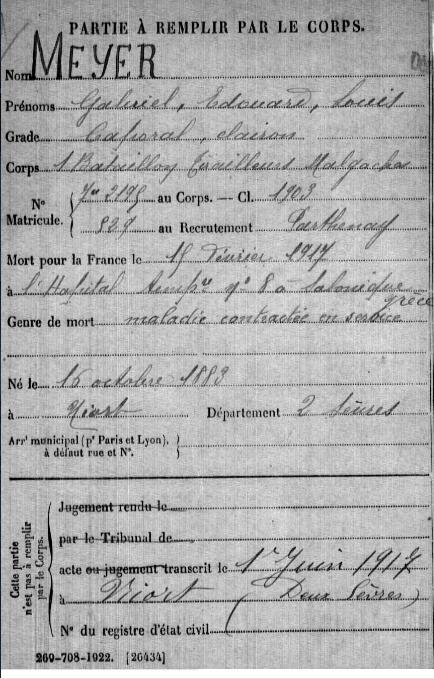 PARTIE À REMPLIR PAR LE CORPS.
Nom MEYER
Prénoms Gabriel, Edouard, Louis
Grade Caporal, clairon
Corps 1 Bataillon Tirailleurs Malgaches
N° Matricule. { 2195 au Corps. — Cl. 1903
829 au Recrutement Parthenay
Mort pour la France le 15 février 1917
à l'Hôpital temp.re n° 8 à Salonique
grèce
Genre de mort maladie contractée en service
Né le 16 octobre 1883
à Niort Département 2 Sèvres
Arrt municipal (pr Paris et Lyon),
à défaut rue et N°.
Cette partie n'est pas à remplir par le Corps.
Jugement rendu le
par le Tribunal de
acte ou jugement transcrit le 1r Juin 1917
à Niort (Deux Sèvres)
N° du registre d'état civil
269-708-1922. [26434]